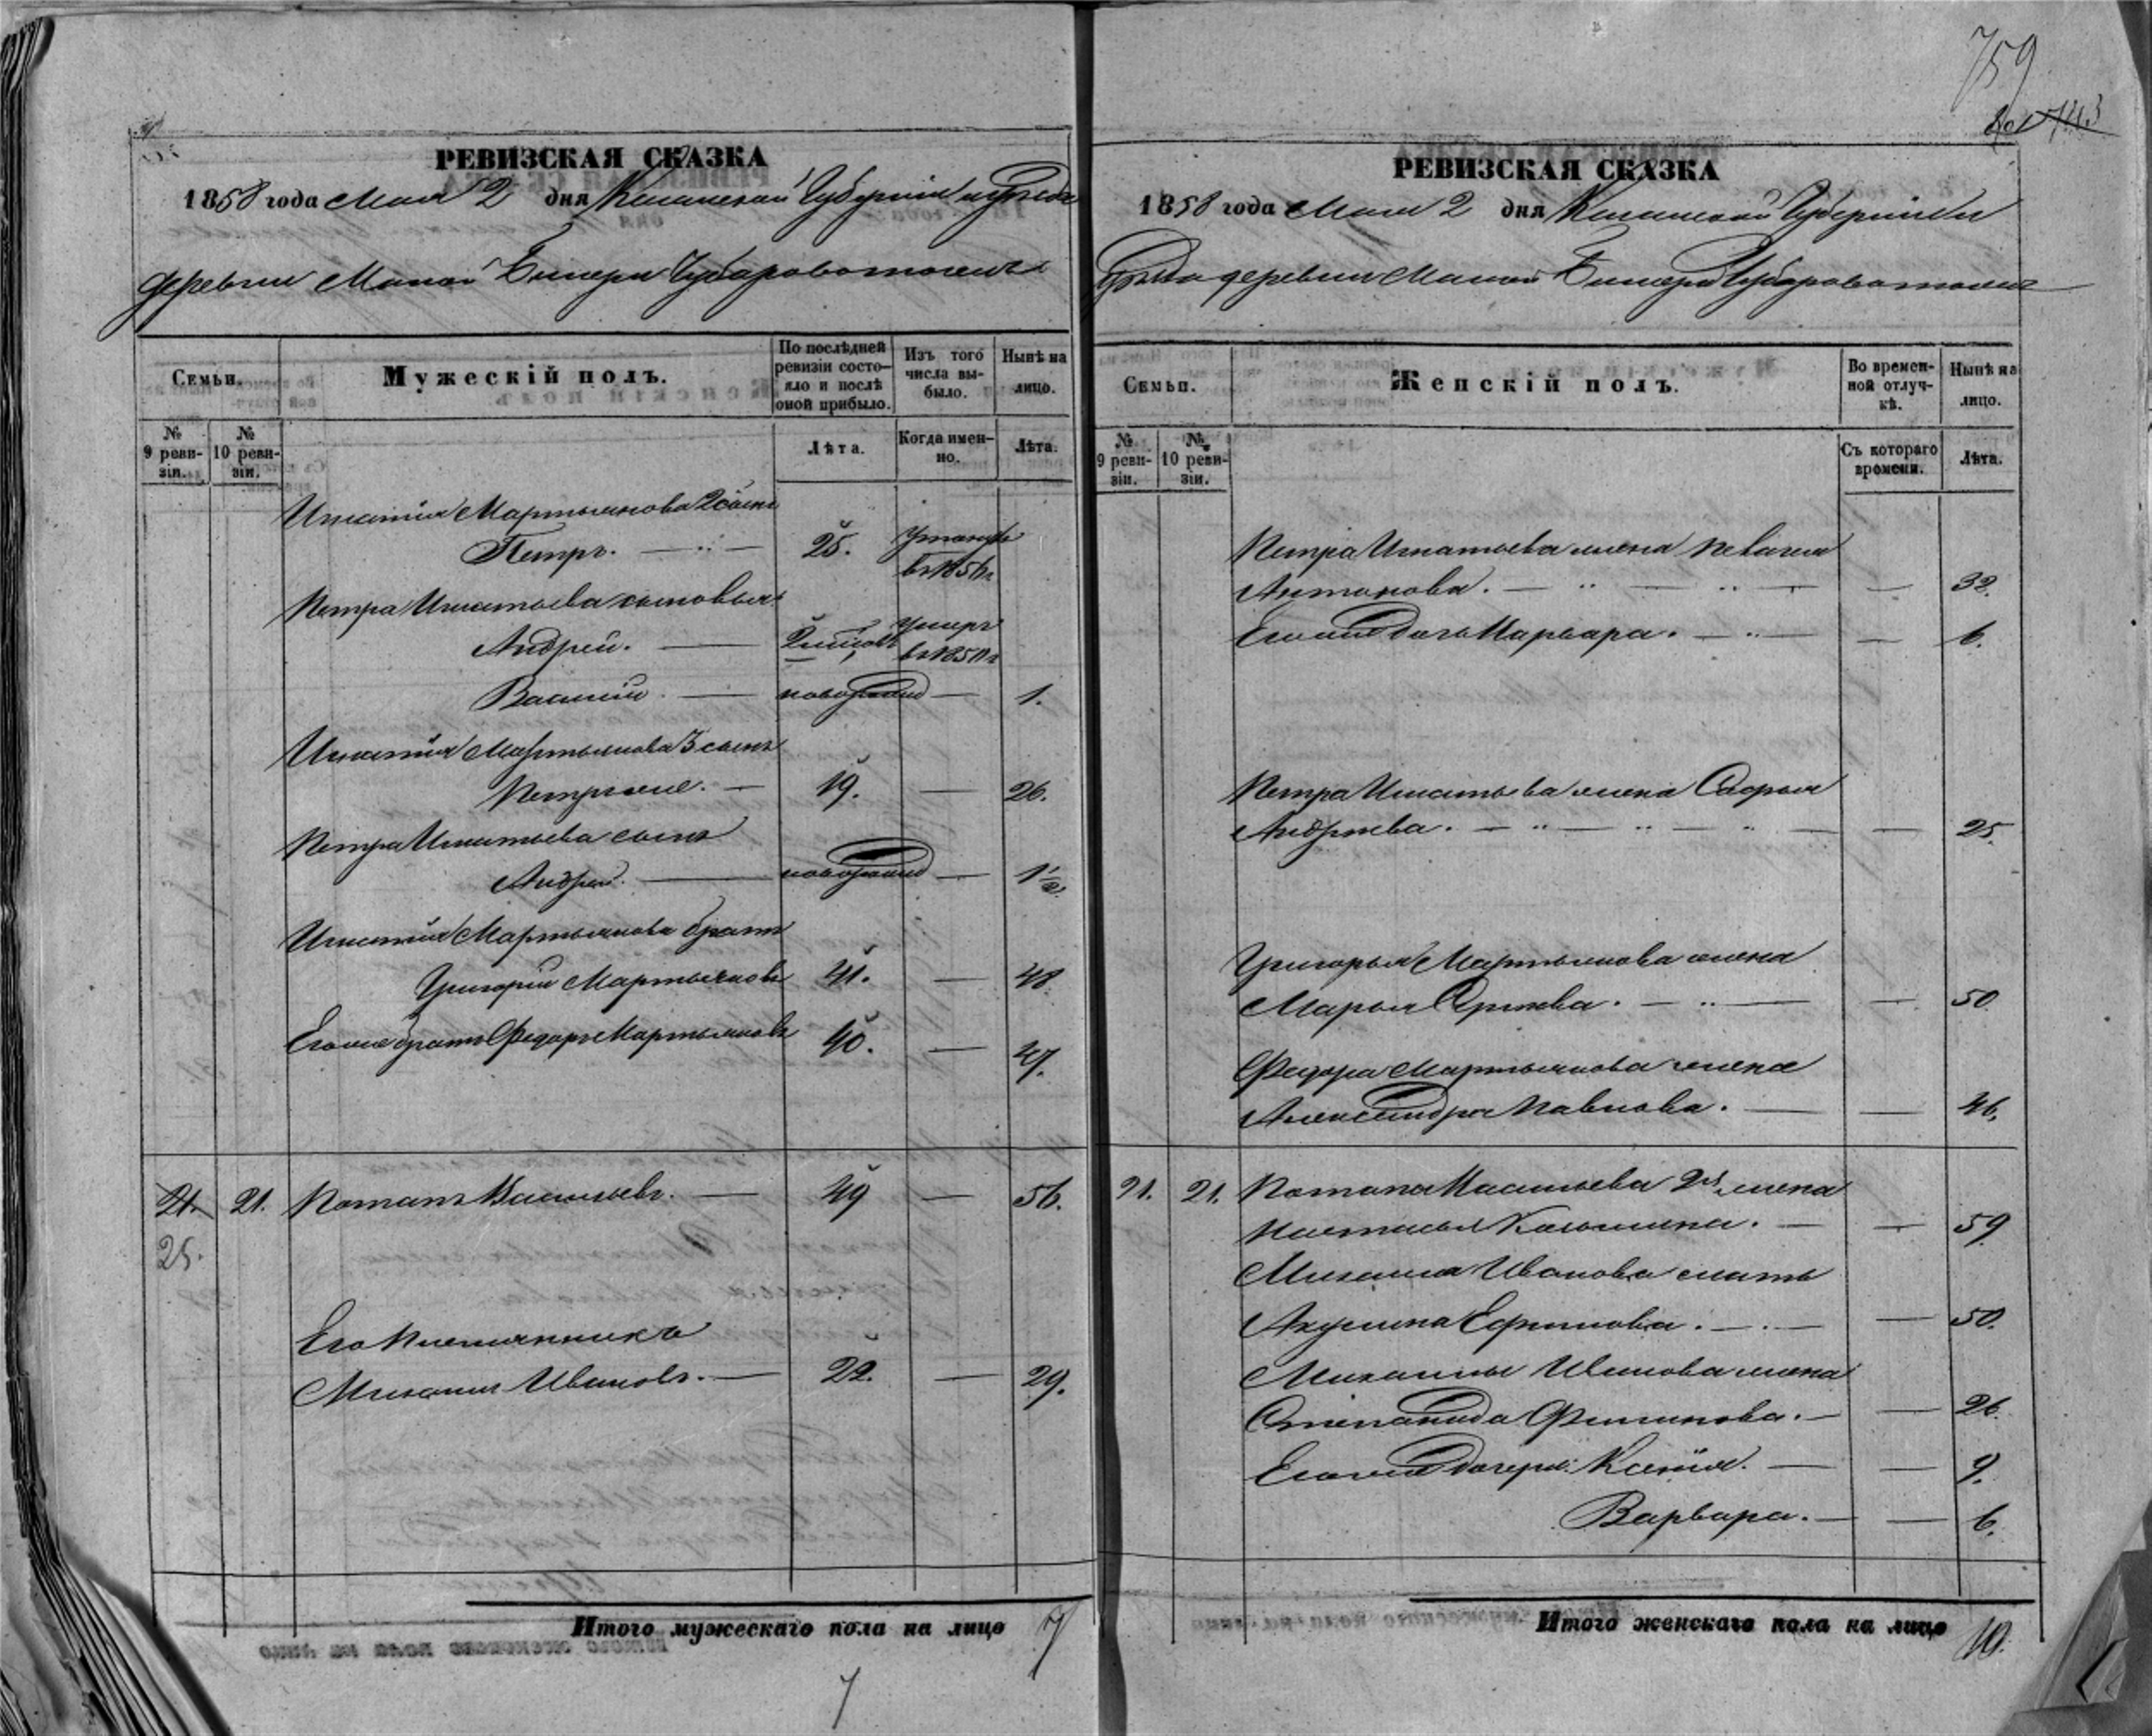 759
РЕВИЗСКАЯ СКАЗКА
1858 года Мая 2 дня Казанской Губерніи и уезда
деревни Малой Битери Чубаровотожъ
Семьи.
Мужескій полъ.
По послѣдней ревизіи состояло и послѣ оной прибыло.
Изъ того числа выбыло.
Нынѣ на лицо.
№ 9 ревизіи.
№ 10 ревизіи.
Лѣта.
Когда именно.
Лѣта.
Игнатія Мартьянова 2 сынъ
Петръ. 25. въ 1856 г
Петра Игнатьева сыновья:
Андрей. умеръ
Василій новорожд 1.
Игнатія Мартьянова 3 сынъ
Петръ же. 19. 26.
Петра Игнатьева сынъ
Андрей. новорожд 1 1/2.
Игнатія Мартьянова братъ
Григорій Мартьяновъ 41. 48.
Его же братъ Федоръ Мартьяновъ 40. 47.
21. 21. Потапъ Васильевъ. 49 56.
25.
Его племянникъ
Михаилъ Ивановъ. 22. 29.
Итого мужескаго пола на лицо 7
7
РЕВИЗСКАЯ СКАЗКА
1858 года Мая 2 дня Казанской Губерніи и
уезда деревни Малой Битери Чубаровотожъ
Семьи.
Женскій полъ.
Во временной отлучкѣ.
Нынѣ на лицо.
№ 9 ревизіи.
№ 10 ревизіи.
Съ котораго времени.
Лѣта.
Петра Игнатьева жена Пелагея
Антонова. 32.
Его же дочь Марвара. 6.
Петра Игнатьева жена Софья
Андреева. 25.
Григорья Мартьянова жена
Марья Сергѣева. 50
Федора Мартьянова жена
Александра Павлова. 46.
21. 21. Потапа Васильева 2я жена
Настасья Козьмина. 59
Михаила Иванова мать
Акулина Ефимова. 50.
Михаилы Иванова жена
Степанида Филипова. 26.
Его же дочери: Ксенія. 9.
Варвара. 6.
Итого женскаго пола на лицо 10.